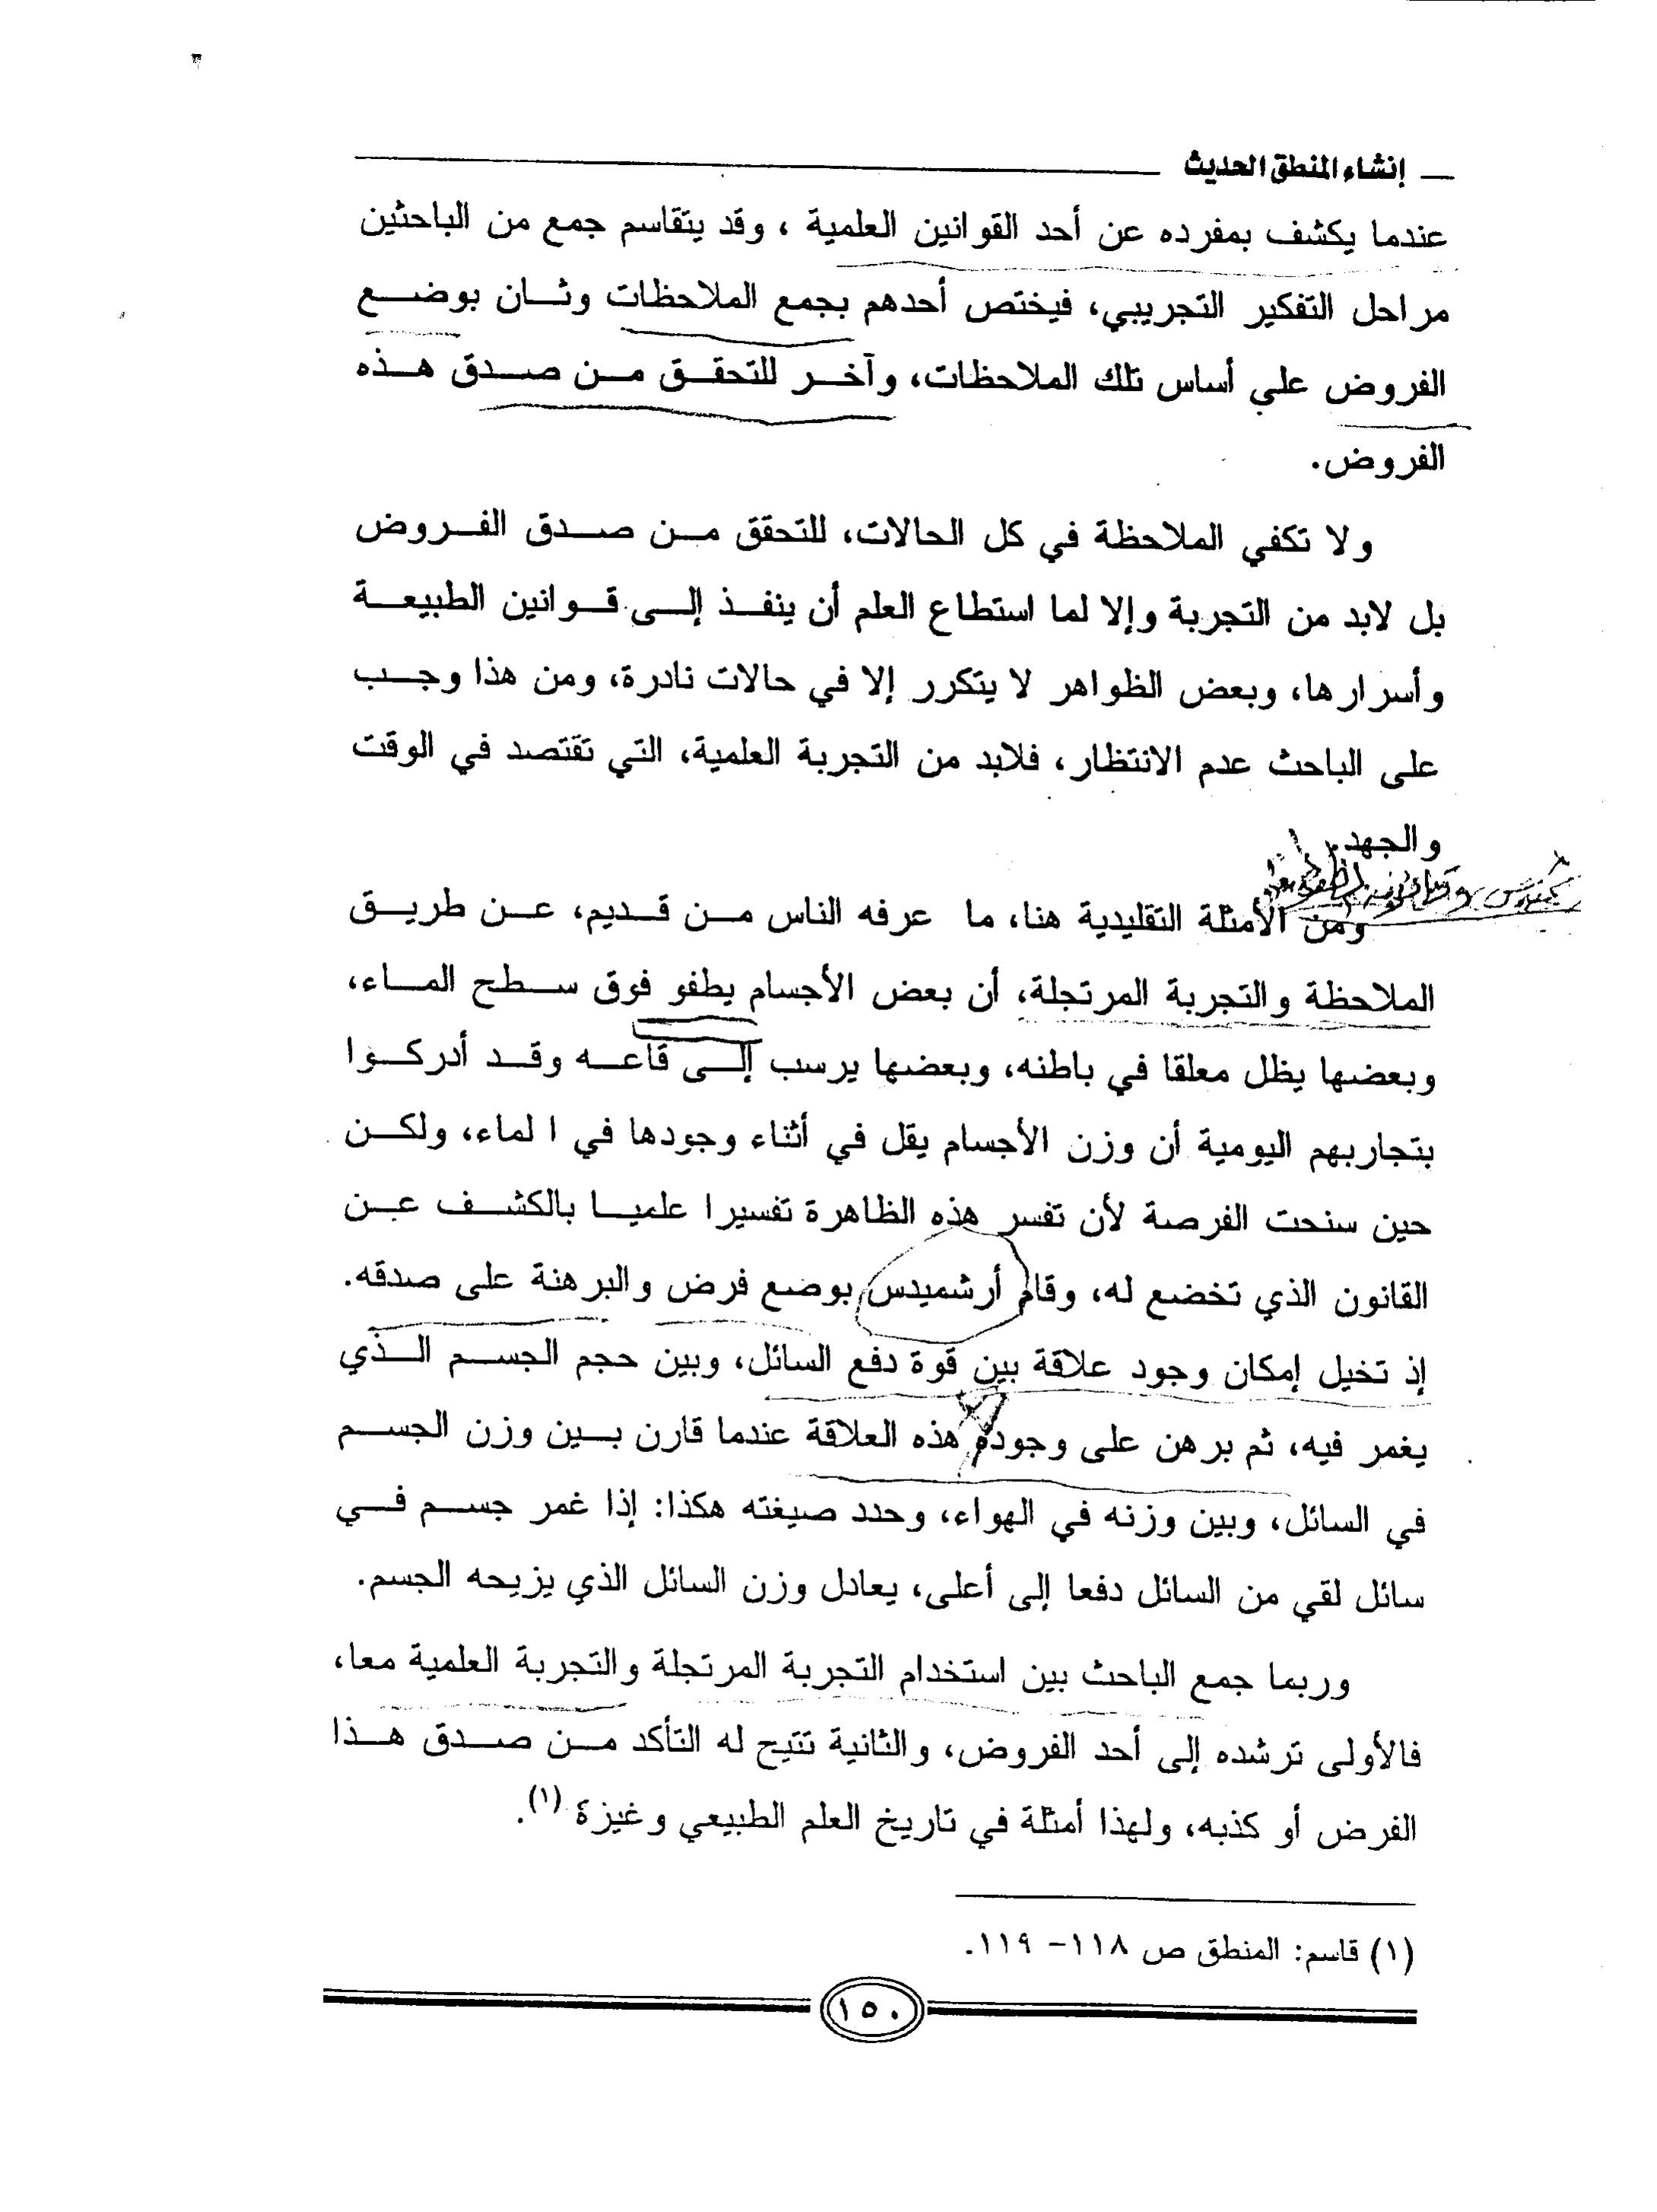 إنشاء المنطق الحديث
عندما يكشف بمفرده عن أحد القوانين العلمية ، وقد يتقاسم جمع من الباحثين
مراحل التفكير التجريبي، فيختص أحدهم بجمع الملاحظات وثان بوضع
الفروض علي أساس تلك الملاحظات، وآخر للتحقق من صدق هذه
الفروض.
ولا تكفي الملاحظة في كل الحالات، للتحقق من صدق الفروض
بل لابد من التجربة وإلا لما استطاع العلم أن ينفذ إلى قوانين الطبيعة
وأسرارها، وبعض الظواهر لا يتكرر إلا في حالات نادرة، ومن هذا وجب
على الباحث عدم الانتظار، فلابد من التجربة العلمية، التي تقتصد في الوقت
والجهد.
ومن الأمثلة التقليدية هنا، ما عرفه الناس من قديم، عن طريق
الملاحظة والتجربة المرتجلة، أن بعض الأجسام يطفو فوق سطح الماء،
وبعضها يظل معلقا في باطنه، وبعضها يرسب إلى قاعه وقد أدركوا
بتجاربهم اليومية أن وزن الأجسام يقل في أثناء وجودها في ا لماء، ولكن
حين سنحت الفرصة لأن تفسر هذه الظاهرة تفسيرا علميا بالكشف عن
القانون الذي تخضع له، وقام أرشميدس بوضع فرض والبرهنة على صدقه.
إذ تخيل إمكان وجود علاقة بين قوة دفع السائل، وبين حجم الجسم الذي
يغمر فيه، ثم برهن على وجوده هذه العلاقة عندما قارن بين وزن الجسم
في السائل، وبين وزنه في الهواء، وحدد صيغته هكذا: إذا غمر جسم في
سائل لقي من السائل دفعا إلى أعلى، يعادل وزن السائل الذي يزيحه الجسم.
وربما جمع الباحث بين استخدام التجربة المرتجلة والتجربة العلمية معا،
فالأولى ترشده إلى أحد الفروض، والثانية تتيح له التأكد من صدق هذا
الفرض أو كذبه، ولهذا أمثلة في تاريخ العلم الطبيعي وغيزة (١).
(١) قاسم: المنطق ص ١١٨- ١١٩.
١٥٠